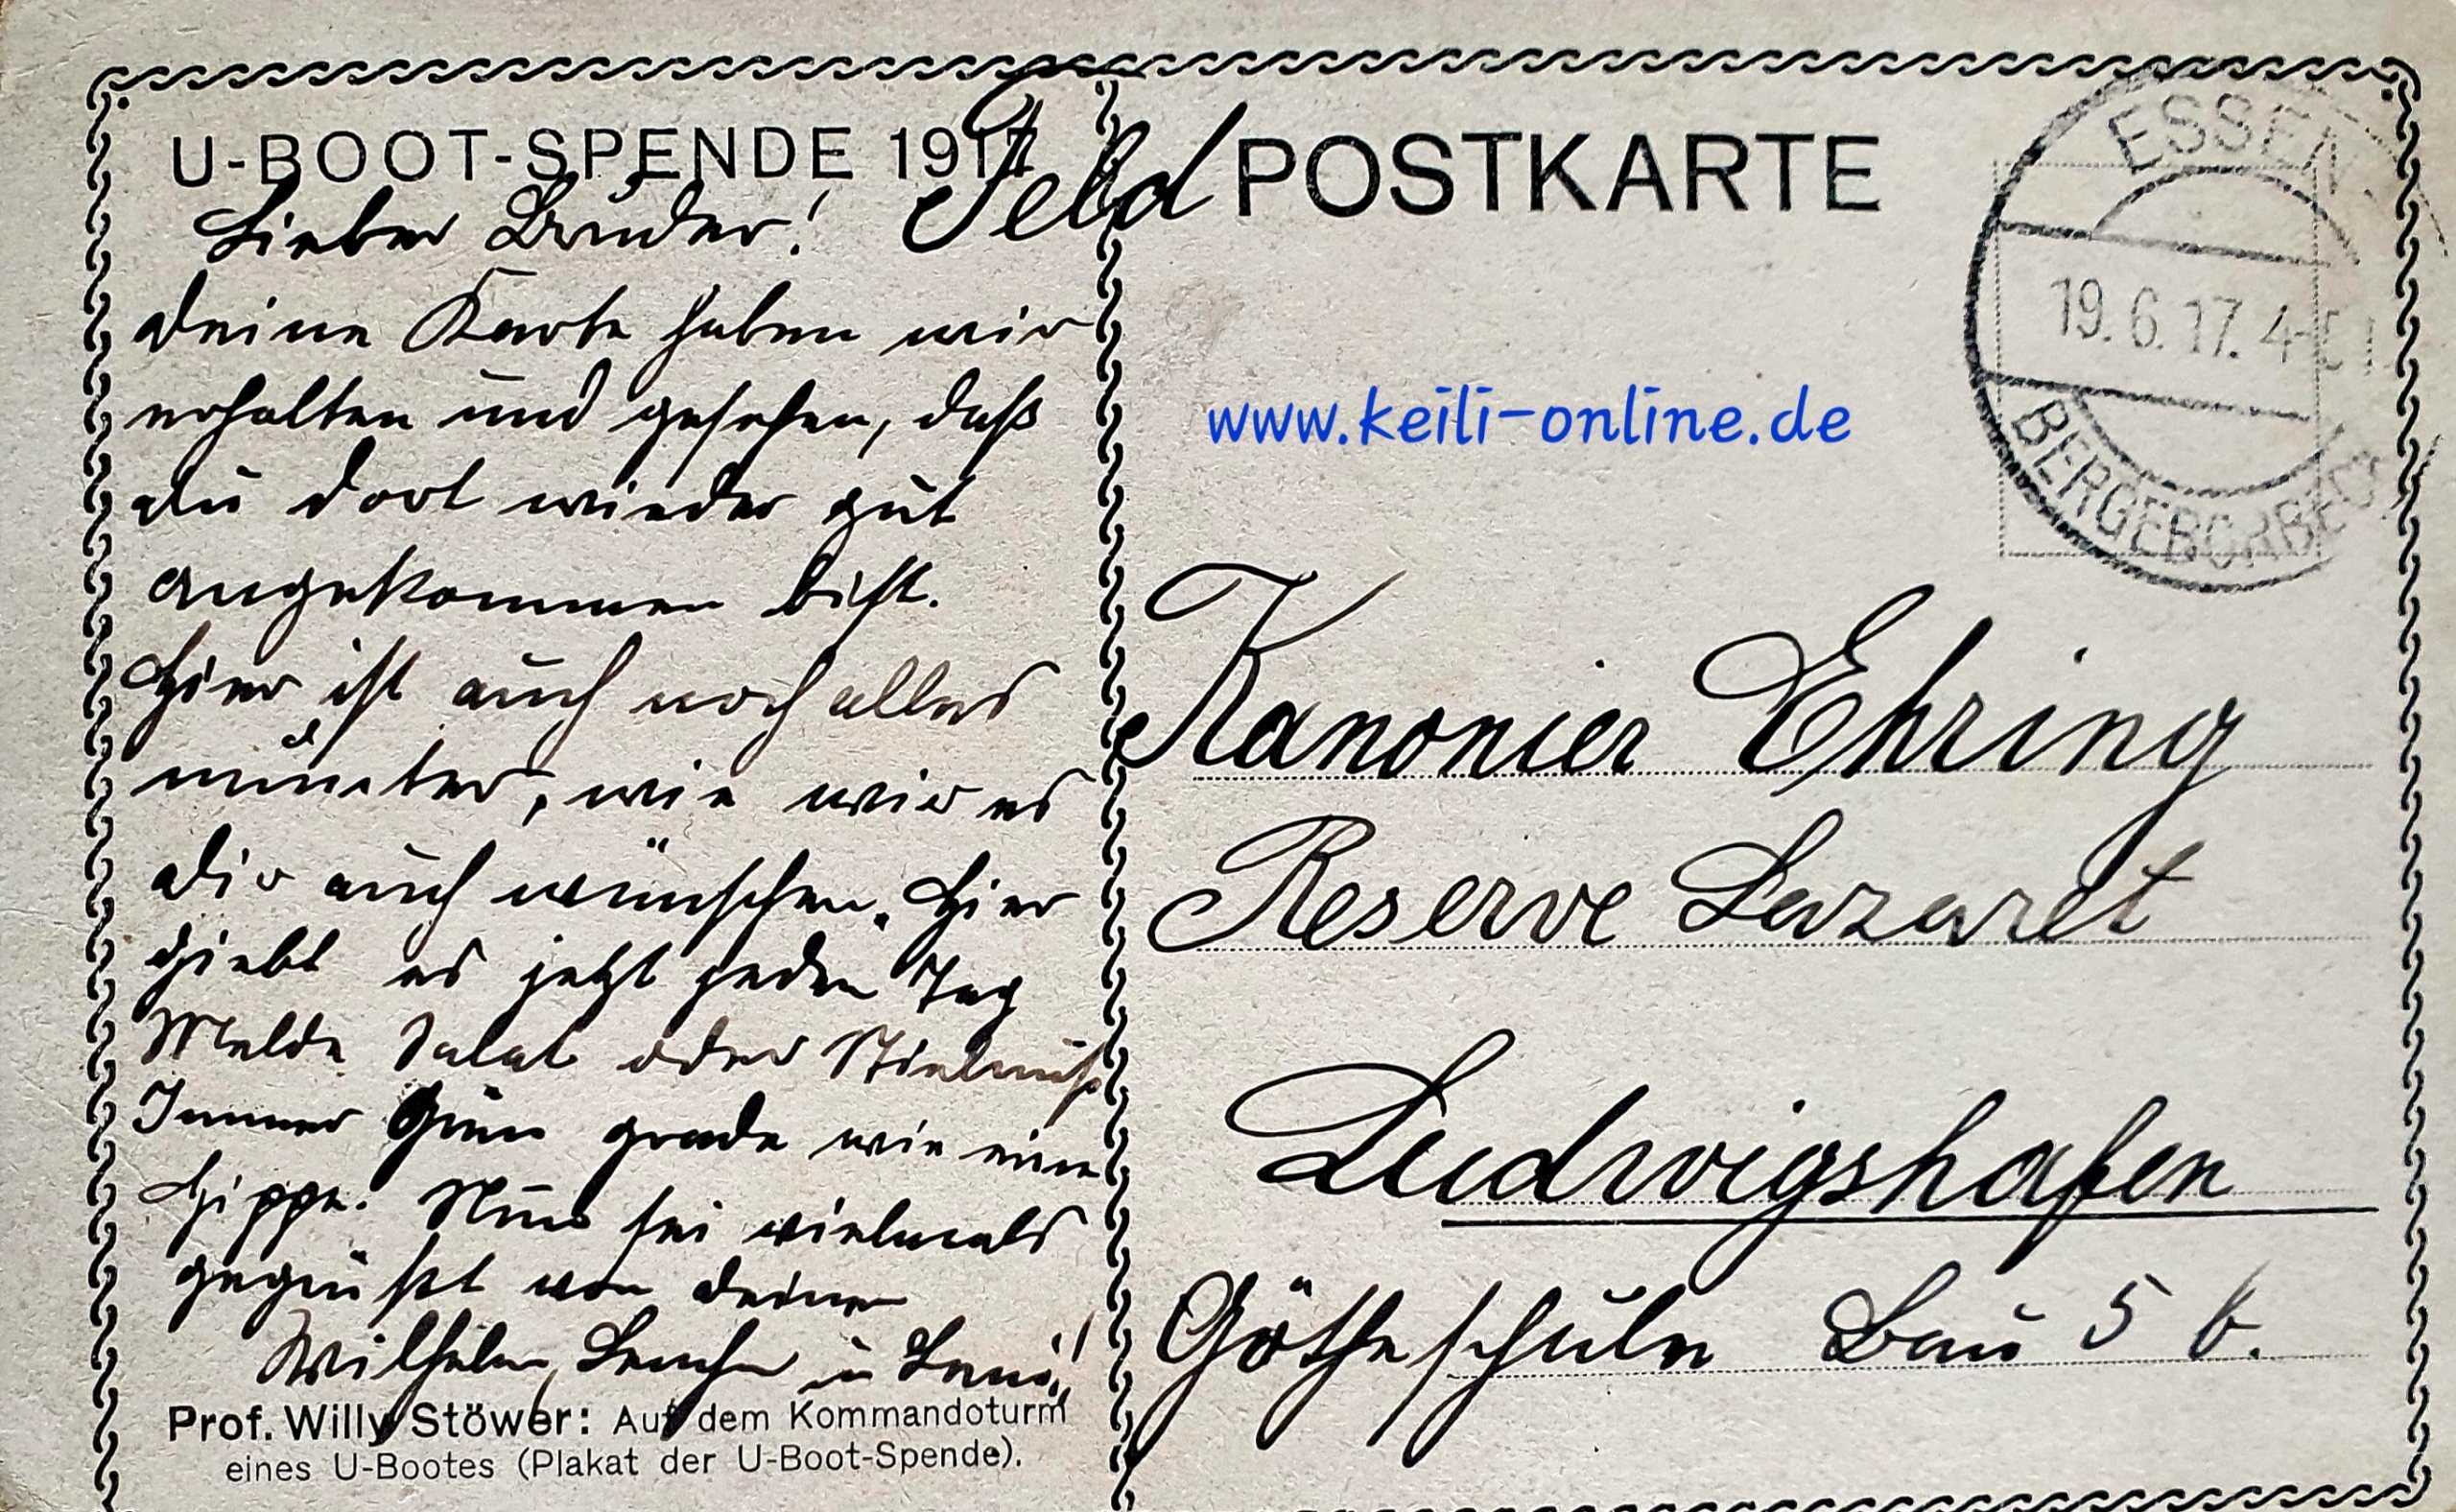 U-BOOT-SPENDE 1917
Feld POSTKARTE
ESSEN
19.6.17. 4-5
BERGEBORBECK
www.keili-online.de
Lieber Bruder!
deine Karte haben wir
erhalten und gesehen, daß
du dort wieder gut
angekommen bist.
Hier ist auch noch alles
munter, wie wir es
dir auch wünschen. Hier
giebt es jetzt jeden Tag
Melde Salat oder Stielmuß
Immer Grün grade wie eine
Hippe. Nun sei vielmals
gegrüßt von deinen
Wilhelm, u
Prof. Willy Stöwer: Auf dem Kommandoturm
eines U-Bootes (Plakat der U-Boot-Spende).
Kanonier Ehring
Reserve Lazaret
Ludwigshafen
Götheschule Bau 5 b.